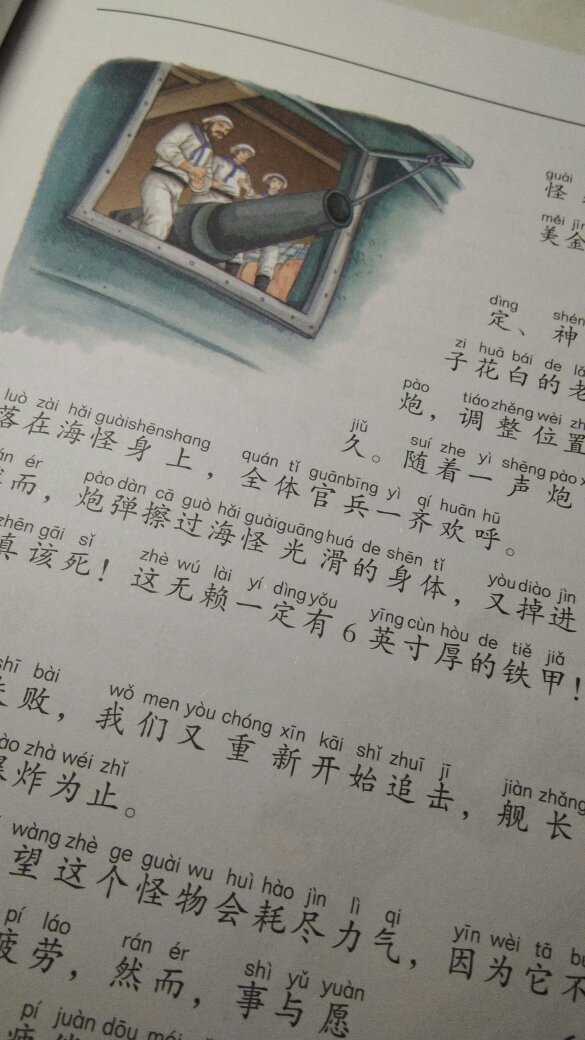 guài
怪
měi jīn
美金
dìng shén
定、神
zi huā bái de lǎ
子花白的老
pào tiáo zhěng wèi zh
炮，调整位置
jiǔ suí zhe yì shēng pào x
久。随着一声炮
luò zài hǎi guài shēn shang quán tǐ guān bīng yì qí huān hū
落在海怪身上，全体官兵一齐欢呼。
rán ér pào dàn cā guò hǎi guài guāng huá de shēn tǐ yòu diào jìn
然而，炮弹擦过海怪光滑的身体，又掉进
zhēn gāi sǐ zhè wú lài yí dìng yǒu yīng cùn hòu de tiě jiǎ
真该死！这无赖一定有6英寸厚的铁甲！
shī bài wǒ men yòu chóng xīn kāi shǐ zhuī jī jiàn zhǎng
失败，我们又重新开始追击，舰长
bào zhà wéi zhǐ
爆炸为止。
wàng zhè ge guài wu huì hào jìn lì qi yīn wèi tā bu
望这个怪物会耗尽力气，因为它不
pí láo rán ér shì yǔ yuàn
疲劳，然而，事与愿
pí juàn dōu méi
疲倦